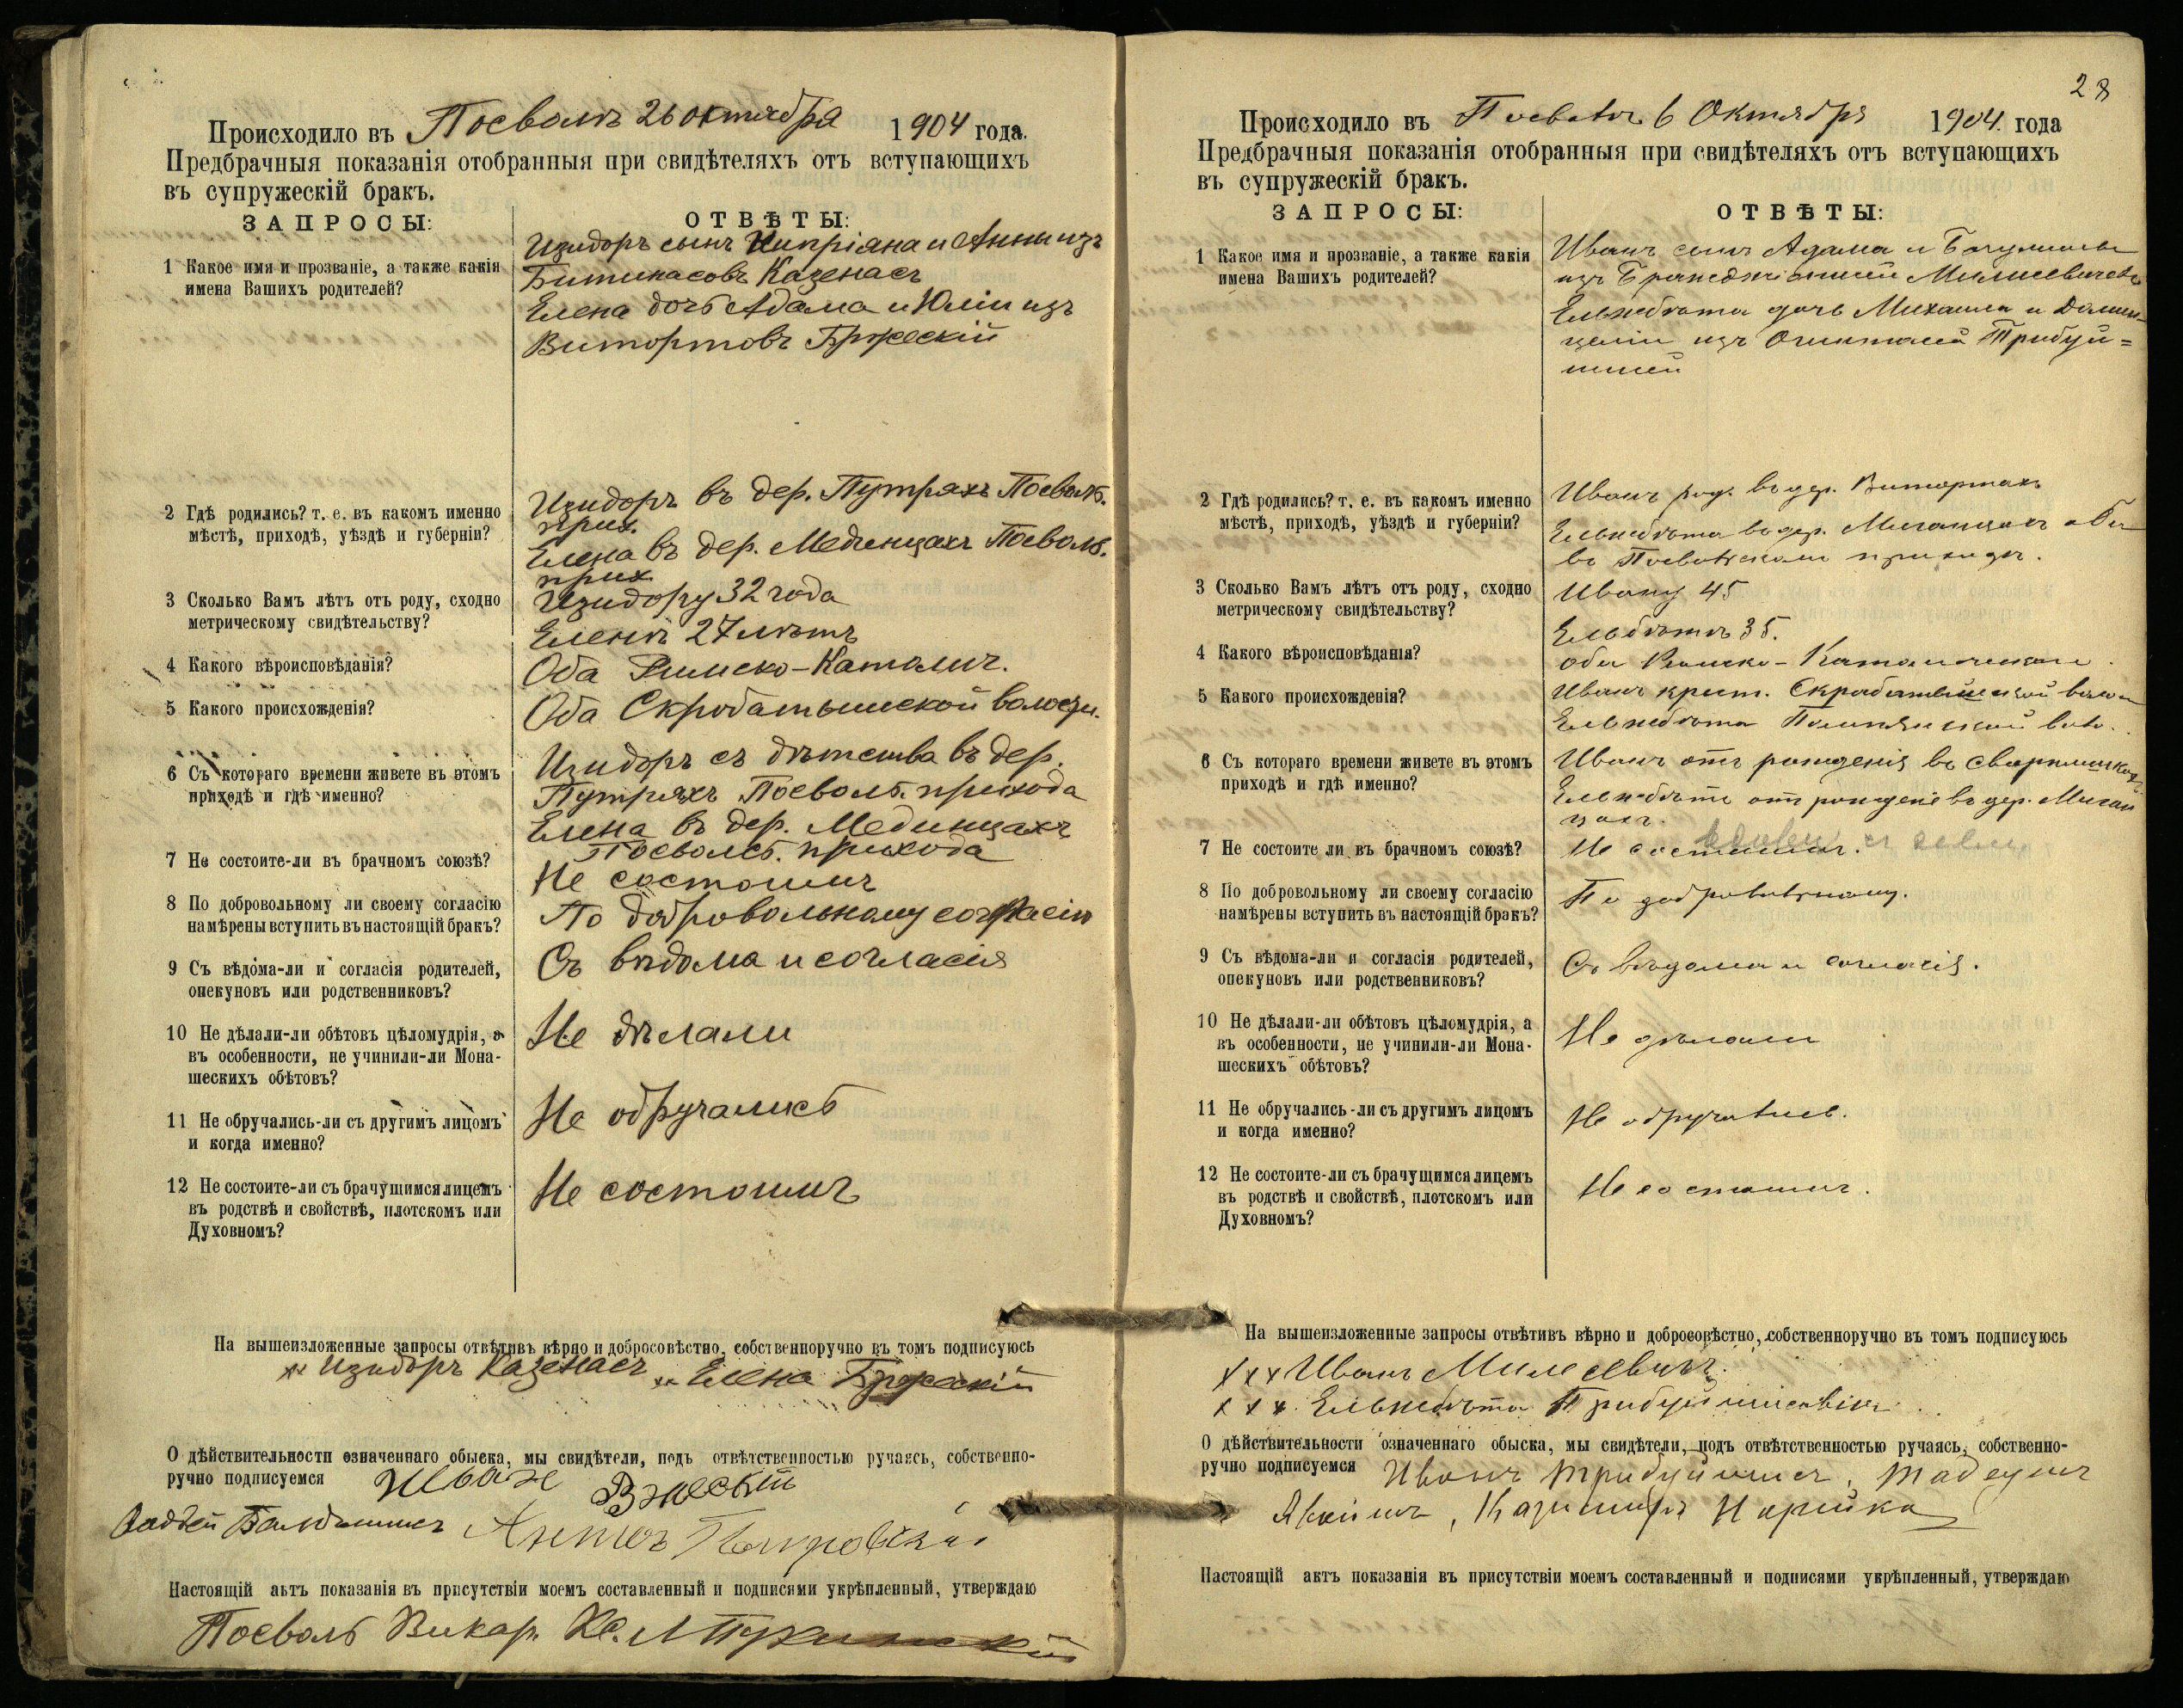 Происходило въ Посволѣ 26 октября 1904 года.
Предбрачныя показанія отобранныя при свидѣтеляхъ отъ вступающихъ
въ супружескій бракъ.
ЗАПРОСЫ:
ОТВѢТЫ:
1 Какое имя и прозваніе, а также какія
имена Вашихъ родителей?
Изидоръ сынъ Кипріяна и Анны изъ
Битинасовъ Казенасъ
Елена дочь Адама и Юліи изъ
Витортовъ Бржескій
2 Гдѣ родились? т. е. въ какомъ именно
мѣстѣ, приходѣ, уѣздѣ и губерніи?
Изидоръ въ дер. Путряхъ Посволь.
прих.
Елена въ дер. Мединцахъ Посволь.
прих.
3 Сколько Вамъ лѣтъ отъ роду, сходно
метрическому свидѣтельству?
Изидору 32 года
Еленѣ 27 лѣтъ
4 Какого вѣроисповѣданія?
Оба Римско-Католич.
5 Какого происхожденія?
Оба Скробатышской волости.
6 Съ котораго времени живете въ этомъ
приходѣ и гдѣ именно?
Изидоръ съ дѣтства въ дер.
Путряхъ Посволь. прихода
Елена въ дер. Мединцахъ
Посвольс. прихода
7 Не состоите-ли въ брачномъ союзѣ?
Не состоимъ
8 По добровольному ли своему согласію
намѣрены вступить въ настоящій бракъ?
По добровольному согласію
9 Съ вѣдома-ли и согласія родителей,
опекуновъ или родственниковъ?
Съ вѣдома и согласія
10 Не дѣлали-ли обѣтовъ цѣломудрія, а
въ особенности, не учинили-ли Мона-
шескихъ обѣтовъ?
Не дѣлали
11 Не обручались-ли съ другимъ лицомъ
и когда именно?
Не обручались
12 Не состоите-ли съ брачущимся лицемъ
въ родствѣ и свойствѣ, плотскомъ или
Духовномъ?
Не состоимъ
На вышеизложенные запросы отвѣтивъ вѣрно и добросовѣстно, собственноручно въ томъ подписуюсь
хх Изидоръ Казенасъ хх Елена Бржескій
О дѣйствительности означеннаго обыска, мы свидѣтели, подъ отвѣтственностью ручаясь, собственно-
ручно подписуемся Иван
Антонъ
Настоящій актъ показанія въ присутствіи моемъ составленный и подписями укрѣпленный, утверждаю
Посволь Викар. Кс.
28
Происходило въ Посволѣ 6 Октября 1904 года
Предбрачныя показанія отобранныя при свидѣтеляхъ отъ вступающихъ
въ супружескій бракъ.
ЗАПРОСЫ:
ОТВѢТЫ:
1 Какое имя и прозваніе, а также какія
имена Вашихъ родителей?
Иванъ сынъ Адама и
изъ Милисевичъ
Ельжбѣта дочь Михаила и Домин-
целіи изъ Трибуй=
шисъ
2 Гдѣ родились? т. е. въ какомъ именно
мѣстѣ, приходѣ, уѣздѣ и губерніи?
Иванъ род. въ дер. Витортахъ
Ельжбѣта въ дер. Миганцахъ оба
въ Посвольскомъ приходѣ.
3 Сколько Вамъ лѣтъ отъ роду, сходно
метрическому свидѣтельству?
Ивану 45
Ельбѣтѣ 35.
4 Какого вѣроисповѣданія?
оба Римско-Католическаго.
5 Какого происхожденія?
Иванъ крест. Скробатышской волос
Ельжбѣта вол.
6 Съ котораго времени живете въ этомъ
приходѣ и гдѣ именно?
Иванъ отъ рожденія въ
Ельжбѣта отъ рожденія въ дер. Миган
цахъ.
7 Не состоите ли въ брачномъ союзѣ?
Не состоимъ.
8 По добровольному ли своему согласію
намѣрены вступить въ настоящій бракъ?
По добровольному.
9 Съ вѣдома-ли и согласія родителей,
опекуновъ или родственниковъ?
Съ вѣдома и согласія.
10 Не дѣлали-ли обѣтовъ цѣломудрія, а
въ особенности, не учинили-ли Мона-
шескихъ обѣтовъ?
Не дѣлали
11 Не обручались-ли съ другимъ лицомъ
и когда именно?
Не обручались.
12 Не состоите-ли съ брачущимся лицемъ
въ родствѣ и свойствѣ, плотскомъ или
Духовномъ?
Не состоимъ.
На вышеизложенные запросы отвѣтивъ вѣрно и добросовѣстно, собственноручно въ томъ подписуюсь
ххх Иванъ Милесевичъ.
ххх Ельжбѣта
О дѣйствительности означеннаго обыска, мы свидѣтели, подъ отвѣтственностью ручаясь, собственно-
ручно подписуемся Иванъ Трибуйшисъ, Тадеушъ
Казимиръ Нарейка
Настоящій актъ показанія въ присутствіи моемъ составленный и подписями укрѣпленный, утверждаю